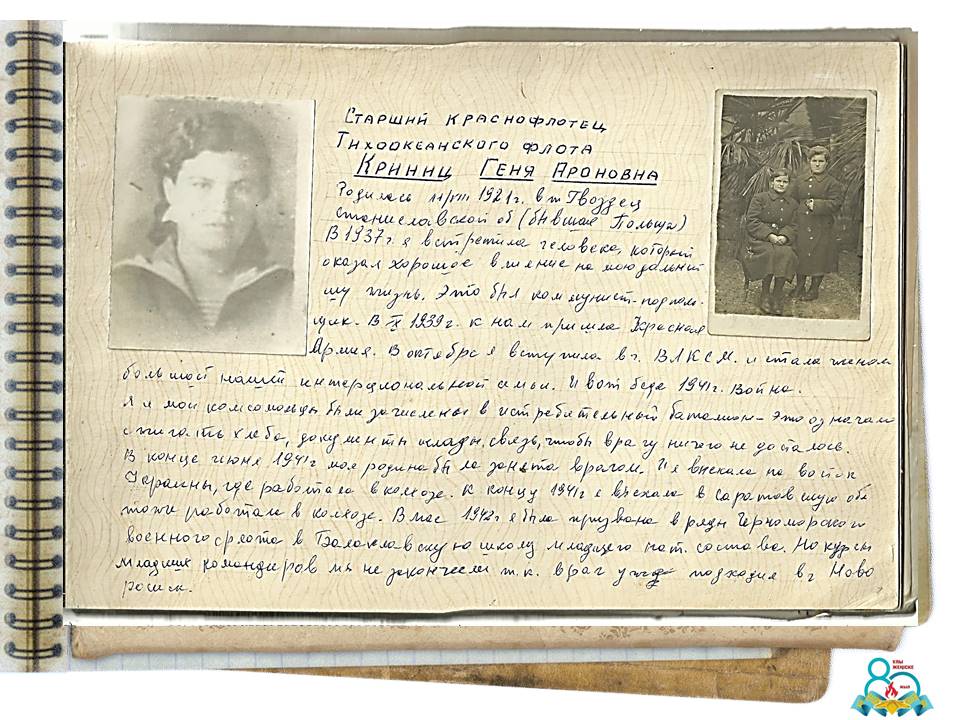 Старший краснофлотец
Тихоокеанского флота
Криниц Геня Ароновна
Родилась 11/VIII 1921г. в м Гвоздец
Станиславской об (бывшая Польша)
В 1937г. я встретила человека, который
оказал хорошое влияние на мою дальней
шу жизнь. Это был коммунист-подполь-
щик. В IX 1939г. к нам пришла Красная
Армия. В октябре я вступила в г. ВЛКСМ. и стала членом
большой нашей интернациональной семьи. И вот беда 1941г. Война.
Я и мои комсомольцы были зачислены в истребительный батальон - это означало
сжигать хлеба, документы склады, связь, чтобы врагу ничего не досталось.
В конце июня 1941г моя родина была занята врагом. И я выехала на восток
Украины, где работала в колхозе. К концу 1941г я выехала в Саратовскую обл
тоже работала в колхозе. В мае 1942г я была призвана в ряды Черноморского
военного флота в Балаклавскую школу младшего нач. состава. Но курсы
младших командиров мы не закончили т.к. враг уже подходил в г Ново
росийск.
ҰЛЫ
ЖЕҢІСКЕ
80
ЖЫЛ